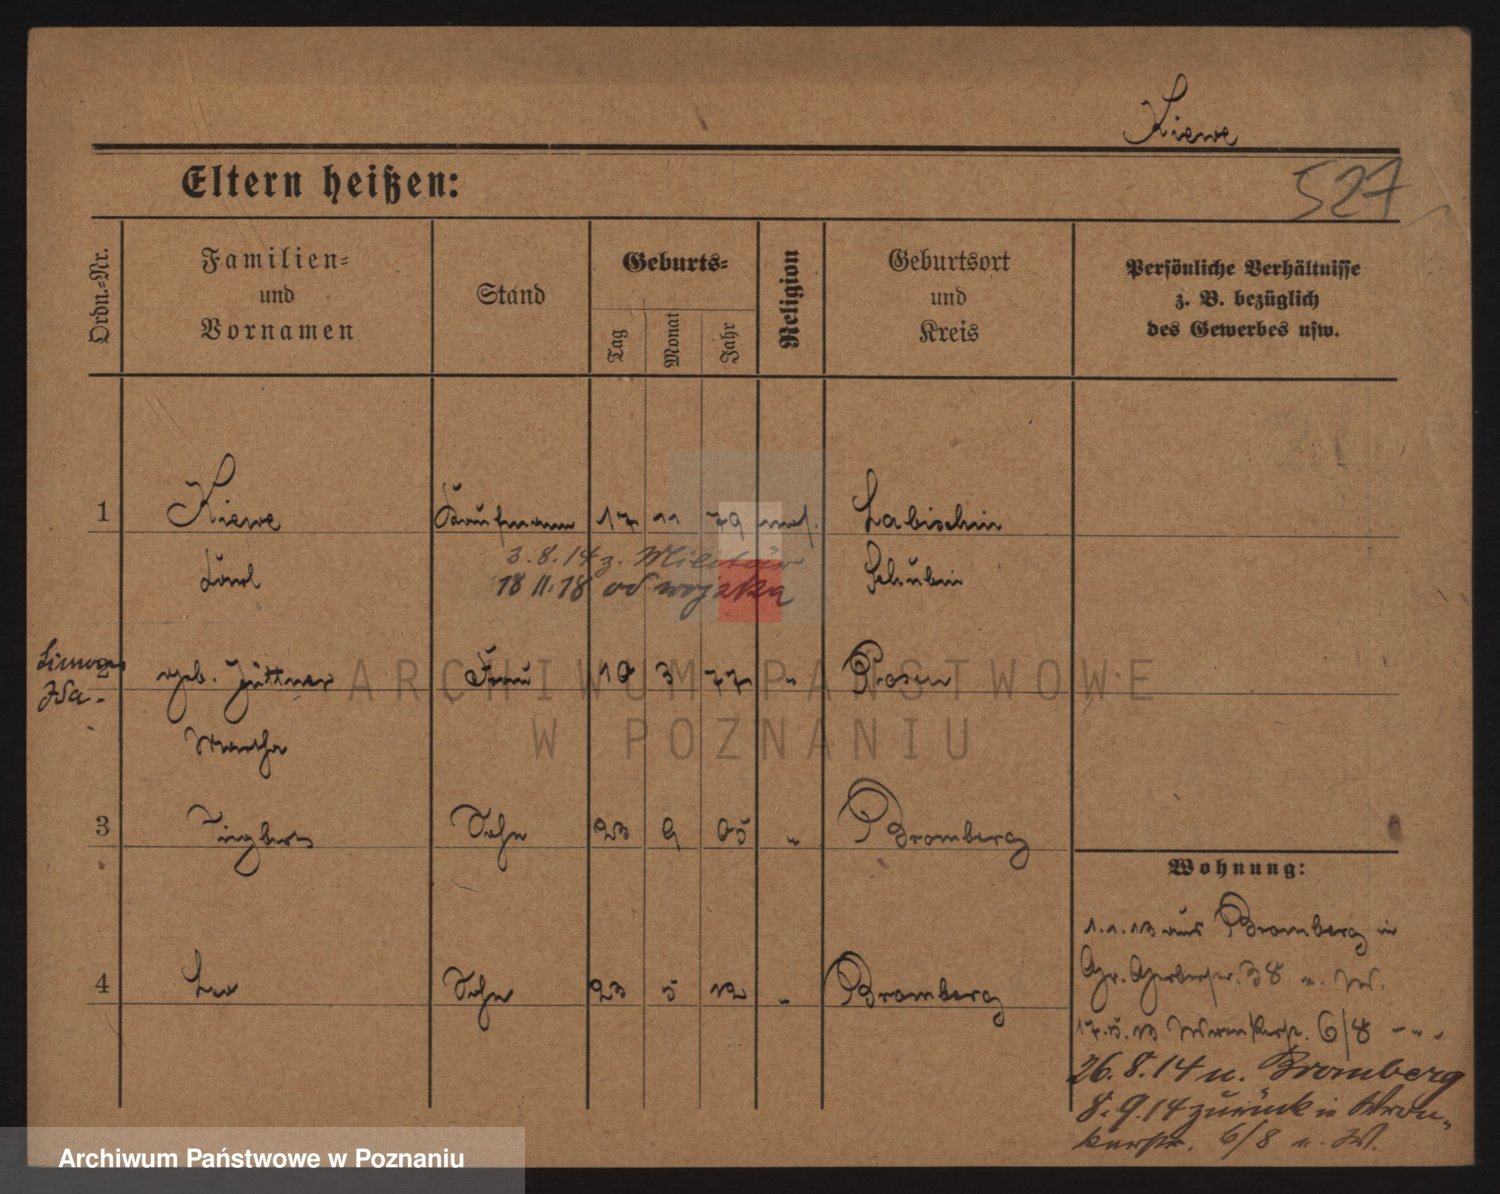 Kiewe
Eltern heißen:
527
Ordn.-Nr.
Familien-
und
Vornamen
Stand
Geburts-
Tag
Monat
Jahr
Religion
Geburtsort
und
Kreis
Persönliche Verhältnisse
z. B. bezüglich
des Gewerbes usw.
1
Kiewe
Kaufmann
17
11
79
mos.
Labischin
3.8.14 z. Militär
Schubin
18 11.18 od wojska
2
geb. Jüttner
Frau
10
3
77
"
Posen
Martha
3
Sohn
23
9
05
"
Bromberg
4
Leo
Sohn
23
5
12
"
Bromberg
Wohnung:
1.1.13 aus Bromberg in
Gr. Gerberstr. 38 u. W.
17.5.13 Wronkerstr. 6/8 - " -
26.8.14 n. Bromberg
8.9.14 zurück in Wron-
kerstr. 6/8 u. W.
ARCHIWUM PAŃSTWOWE
W POZNANIU
Archiwum Państwowe w Poznaniu